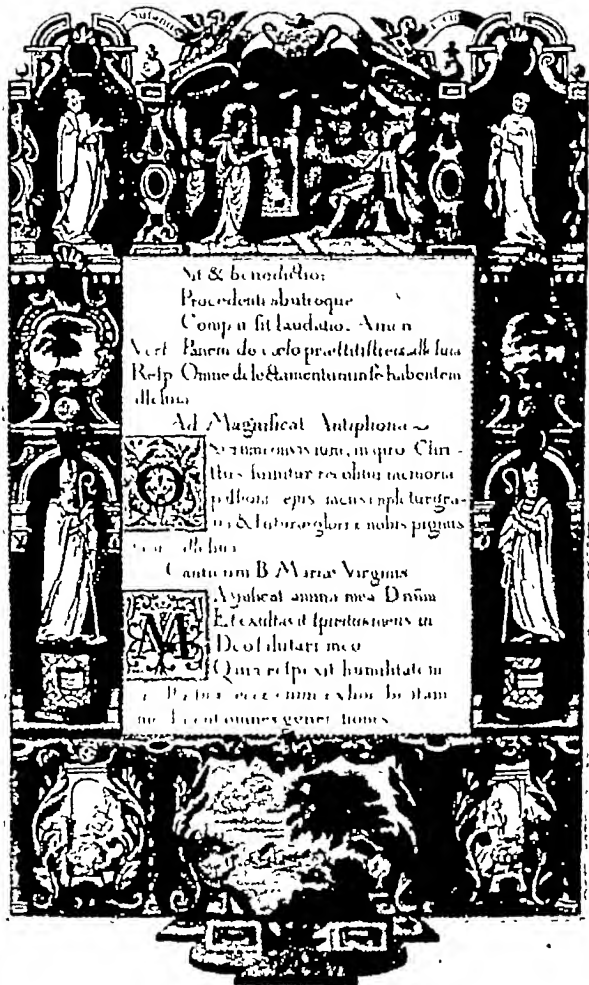 Sit & benedictio:
Procedenti ab utroque
Compar sit laudatio. Amen
Vers. Panem de cælo præstitisti eis, alleluia
Resp. Omne delectamentum in se habentem
alleluia
Ad Magnificat Antiphona
O Sacrum convivium, in quo Chri-
stus sumitur recolitur memoria
passionis ejus mens impletur gra-
tia & futuræ gloriæ nobis pignus
alleluia
Canticum B. Mariæ Virginis
Magnificat anima mea Dnũm
Et exultavit spiritus meus in
Deo salutari meo
Quia respexit humilitatem
ecce enim ex hoc beatam
me dicent omnes generationes